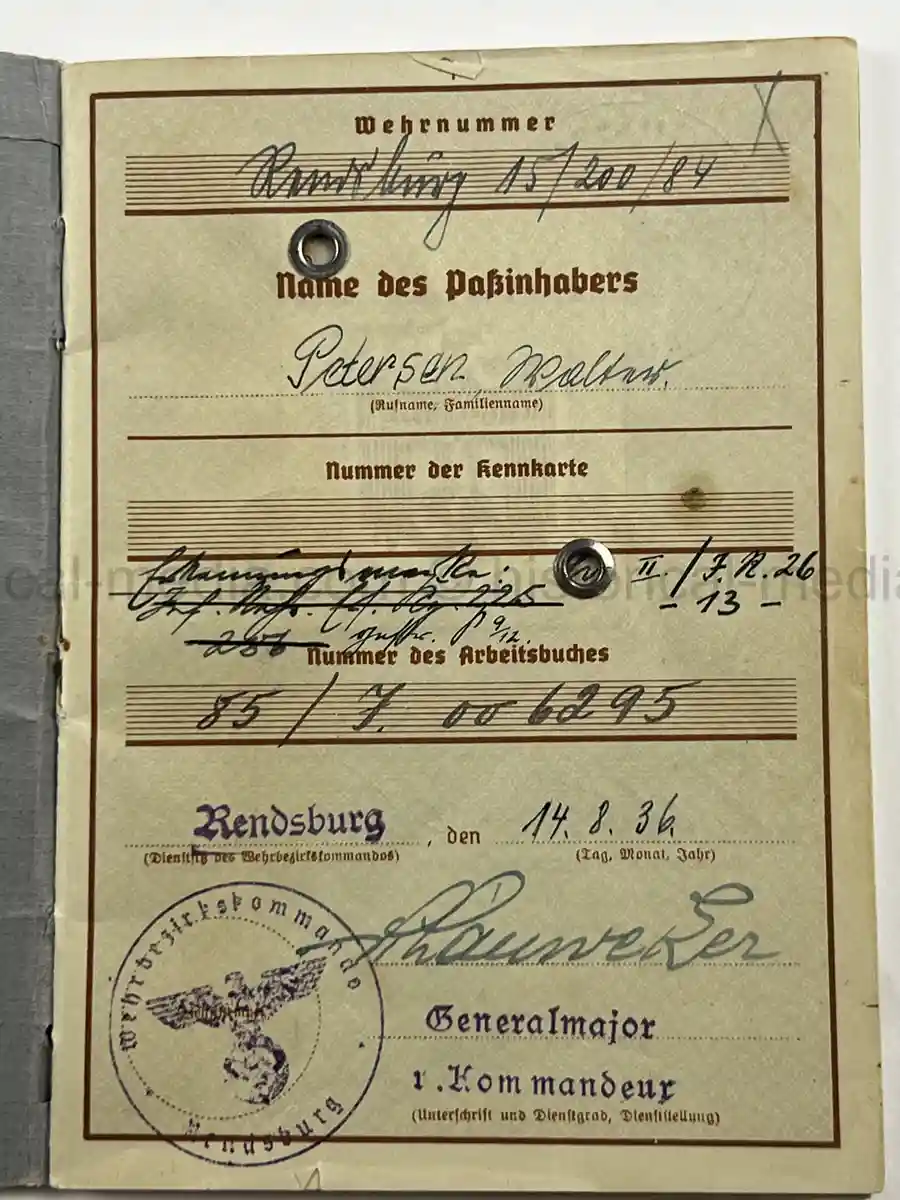 Wehrnummer
Rendsburg 15/200/84
Name des Paßinhabers
Petersen Walter.
(Rufname, Familienname)
Nummer der Kennkarte
Erkennungsmarke: II. / J. R. 26
Inf. 225 - 13 -
Nummer des Arbeitsbuches
85 / 7. 006295
Rendsburg, den 14. 8. 36.
(Dienstsitz des Wehrbezirkskommandos) (Tag, Monat, Jahr)
Wehrbezirkskommando
Rendsburg
Generalmajor
u. Kommandeur
(Unterschrift und Dienstgrad, Dienststellung)